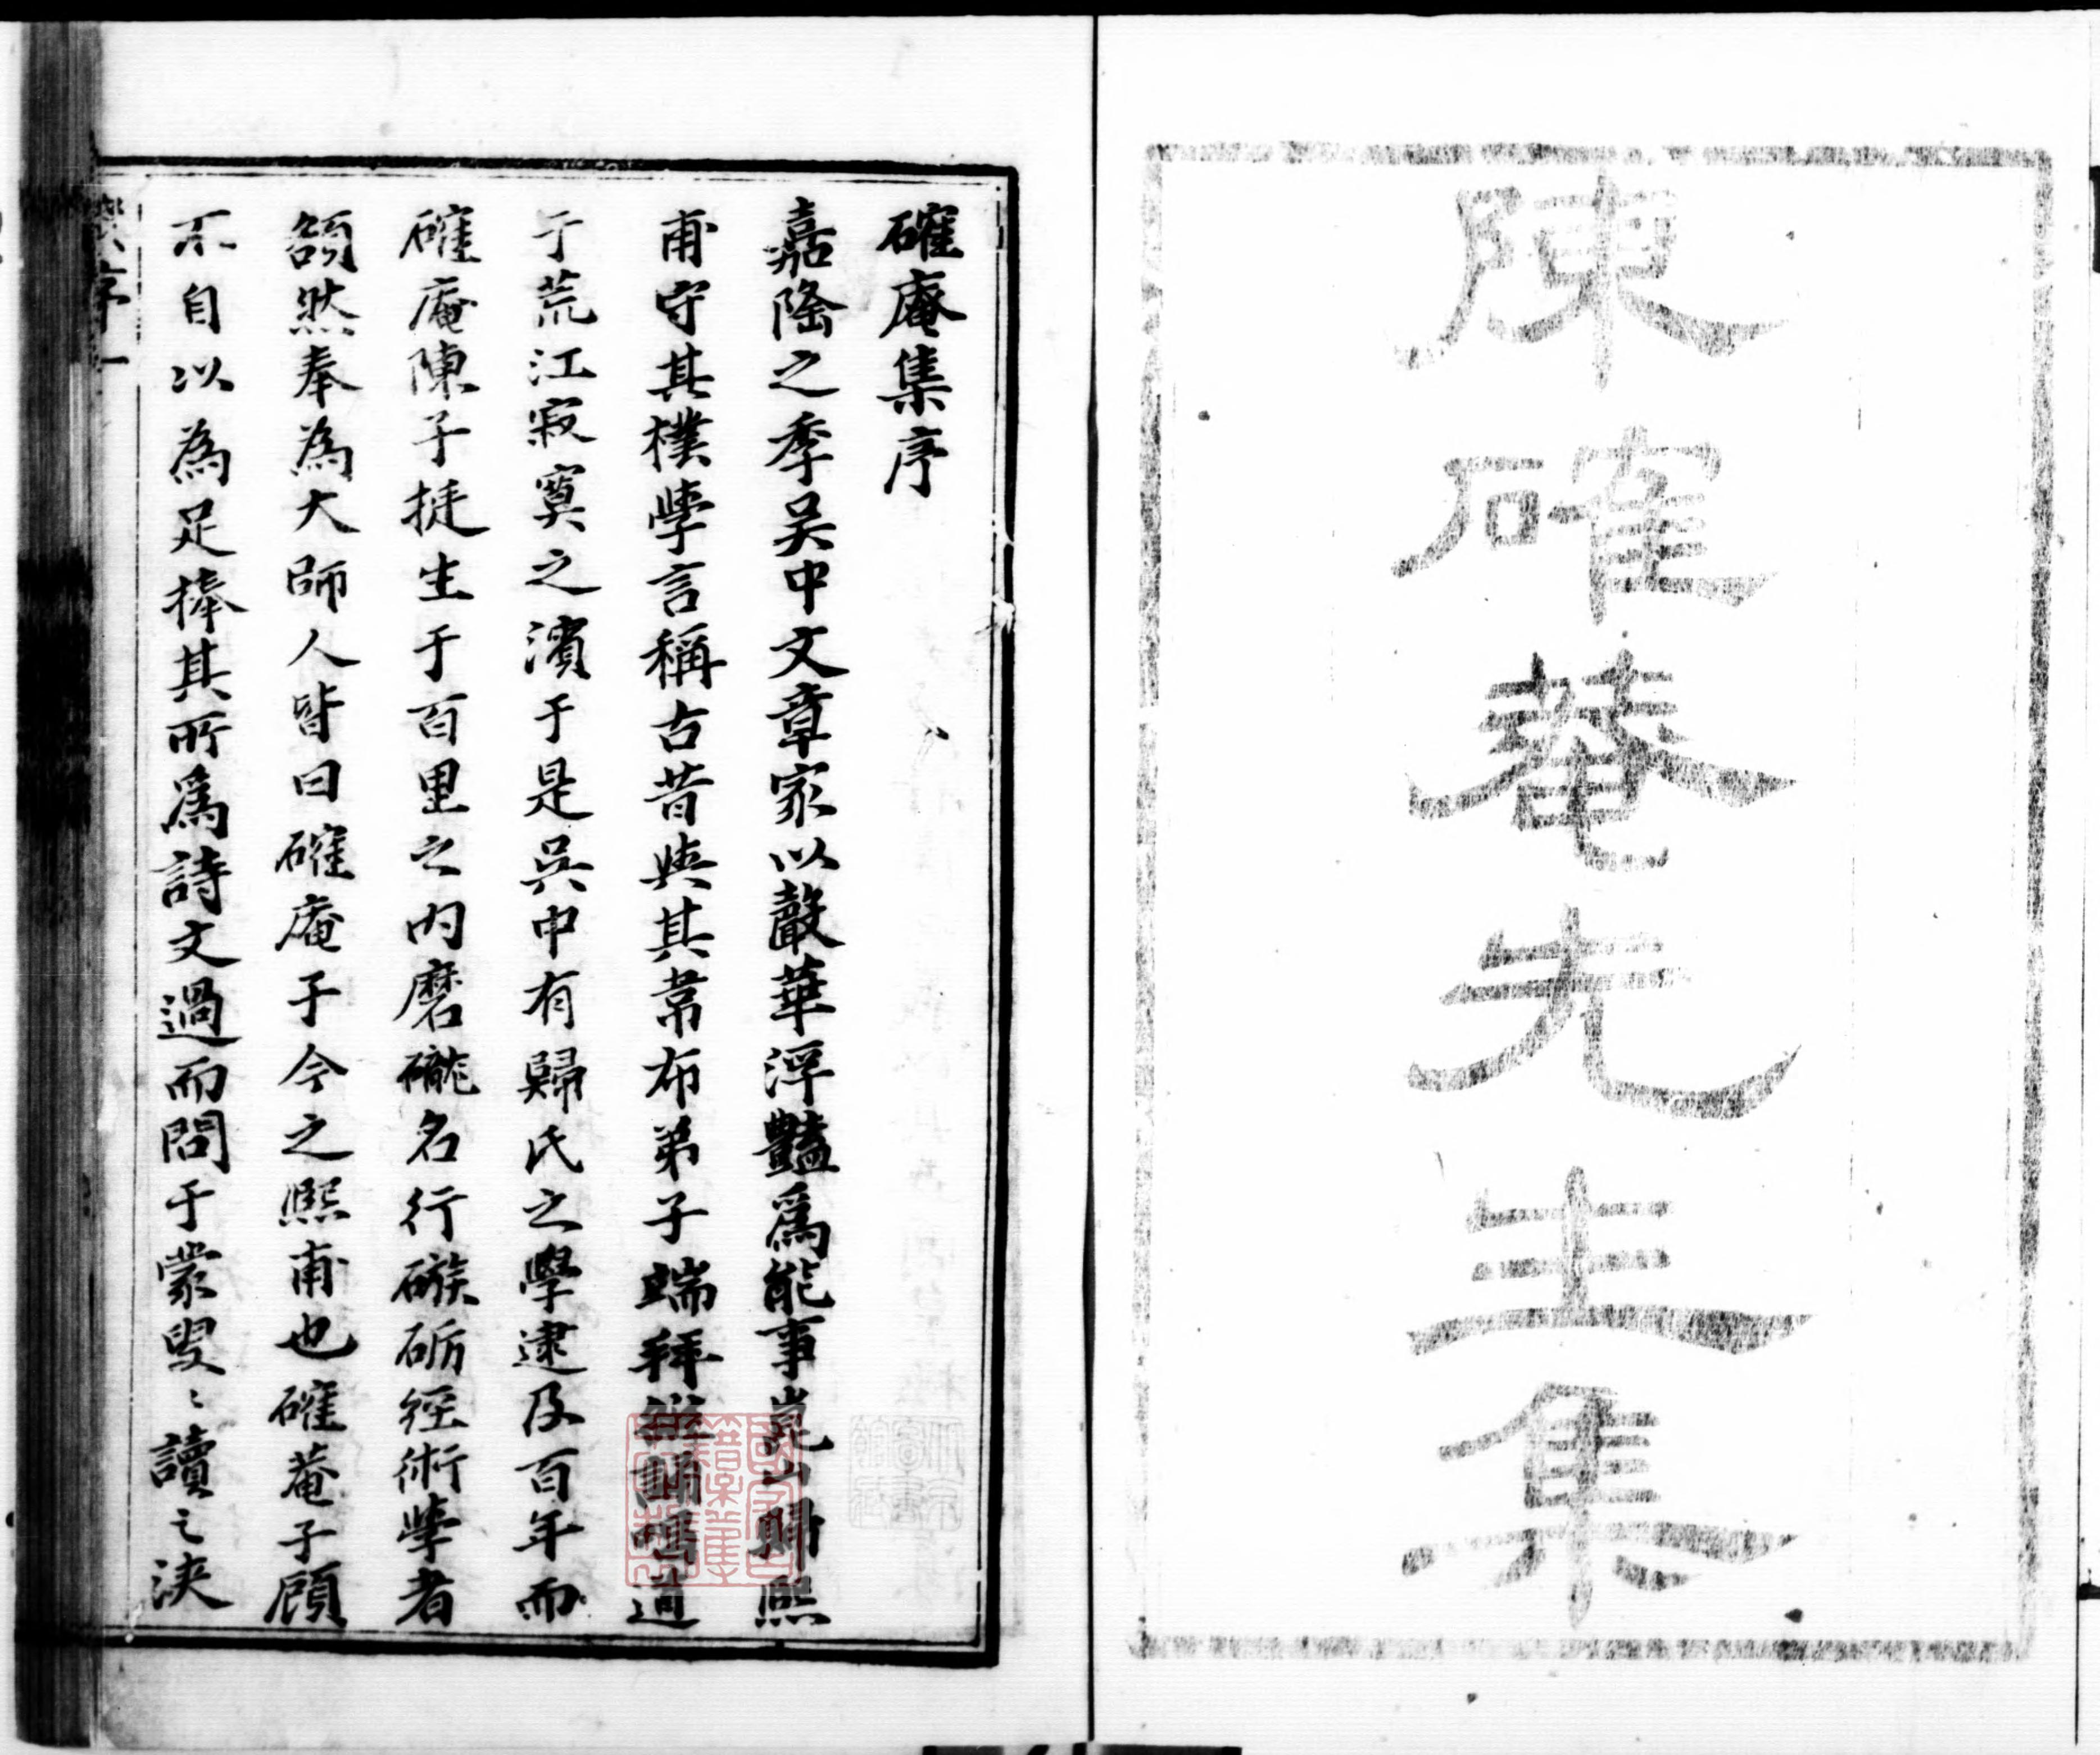 陳確菴先生集
確庵集序
嘉隆之季吴中文章家以聲華浮豔爲能事崑山歸熙
甫守其樸學言稱古昔與其韋布弟子端拜雒誦摳過
于荒江寂寞之濱于是吳中有歸氏之學逮及百年而
確庵陳子挺生于百里之内磨礲名行礪砺經術學者
翕然奉為大師人皆曰確庵子今之熙甫也確菴子顧
不自以為足捧其所爲詩文過而問于蒙叟〻讀之浹
序一